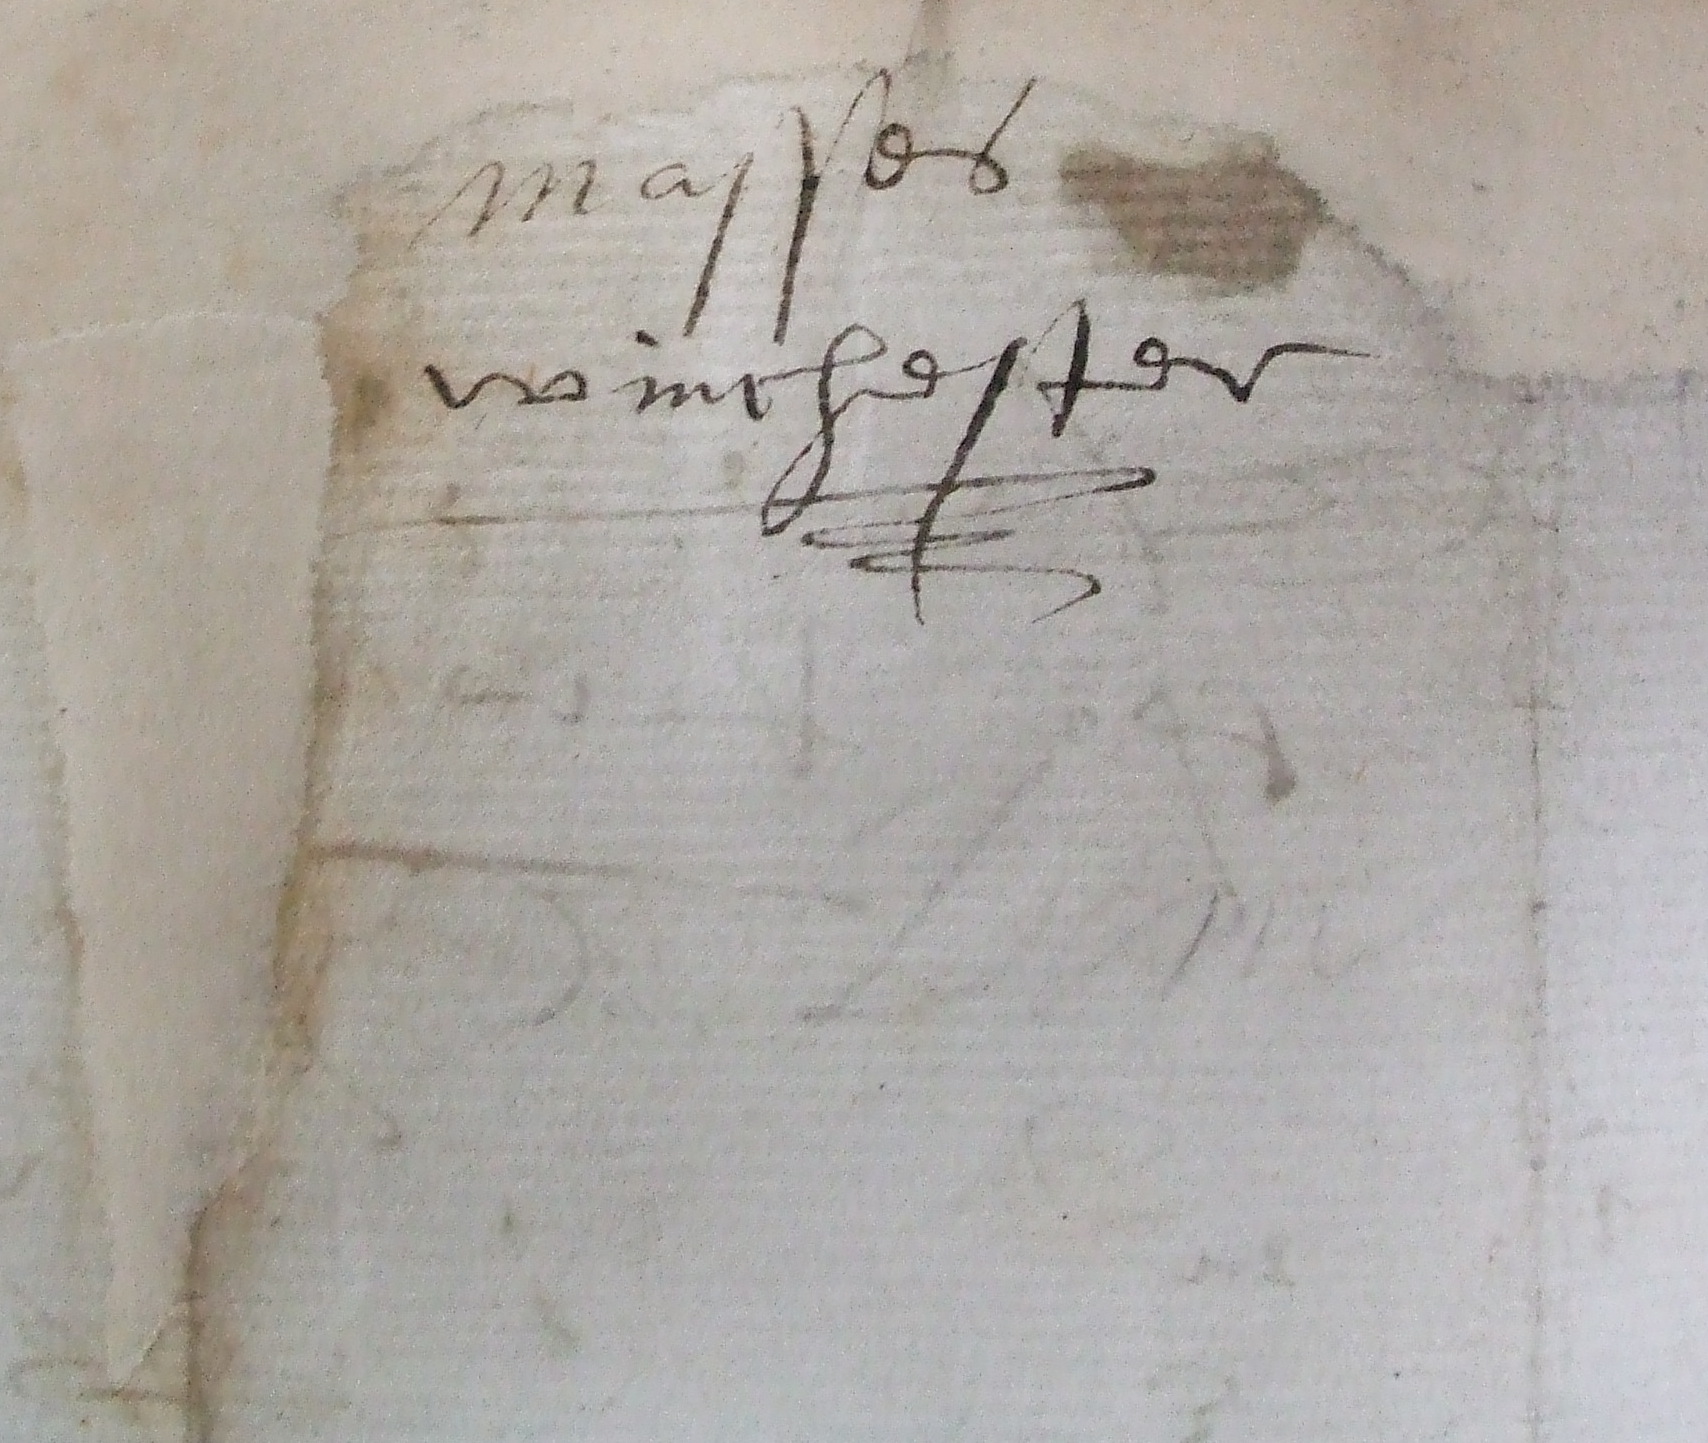 masses
winchester